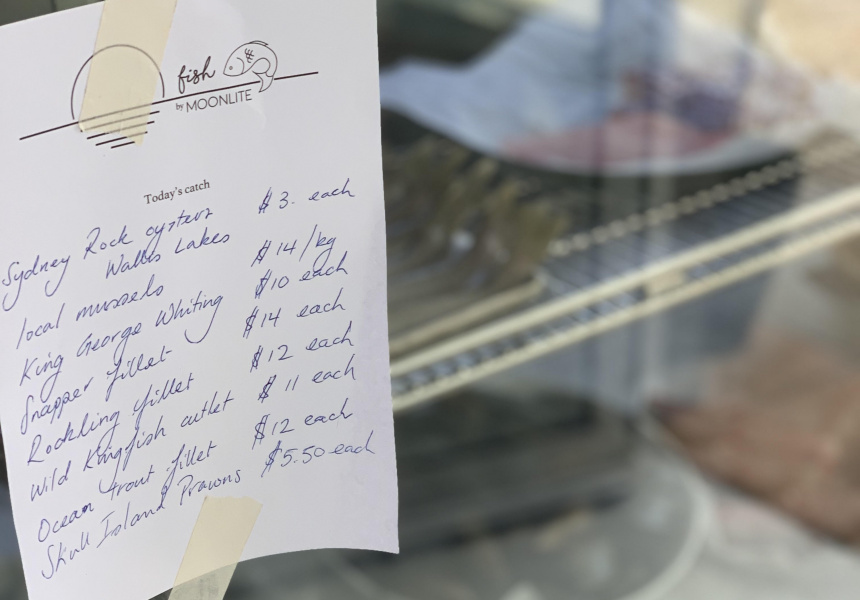 fish
by MOONLITE
Today's catch
Sydney Rock oysters $3. each
Wallis Lakes
local mussels $14/kg
King George Whiting $10 each
Snapper fillet $14 each
Rockling fillet $12 each
Wild Kingfish cutlet $11 each
Ocean trout fillet $12 each
Skull Island Prawns $5.50 each